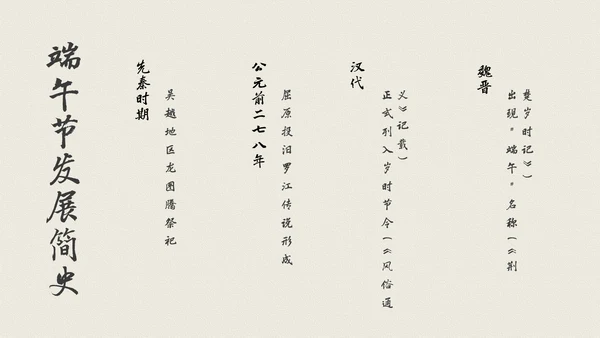 端午节发展简史
先秦时期
吴越地区龙图腾祭祀
公元前二七八年
屈原投汨罗江传说形成
汉代
正式列入岁时节令(《风俗通
义》记载)
魏晋
出现"端午"名称(《荆
楚岁时记》)